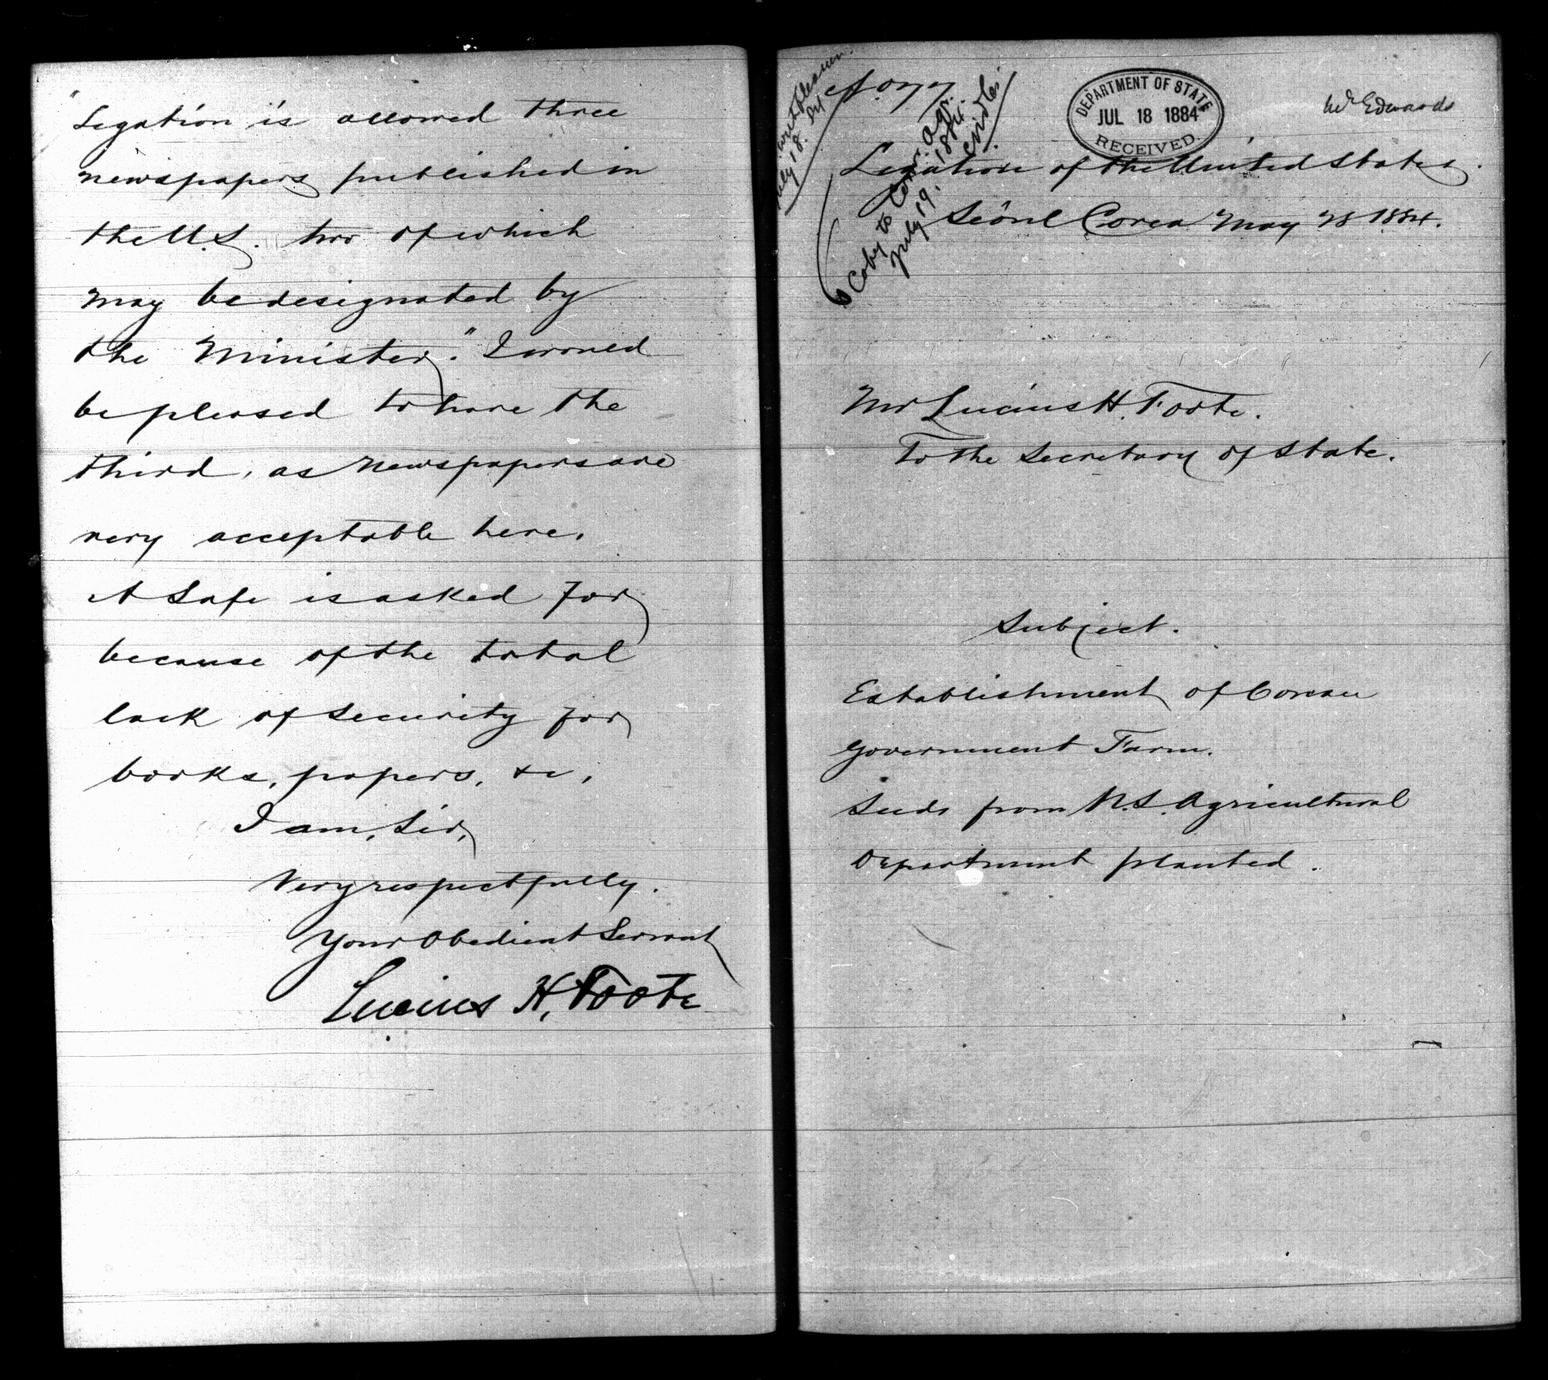 Legation is allowed three
newspapers published in
the U.S. two of which
may be designated by
the Minister." I would
be pleased to have the
third, as newspapers are
very acceptable here.
A Safe is asked for
because of the total
lack of security for
books, papers, &c.
I am, Sir,
Very respectfully.
Your Obedient Servant
Lucius H. Foote
DEPARTMENT OF STATE
JUL 18 1884
RECEIVED
Mr Edwards
July 18.
Copy to Com. Agr.
July 19. 1884
Legation of the United States.
Seoul Corea May 28 1884.
Mr Lucius H. Foote.
To the Secretary of State.
Subject.
Establishment of Corean
Government Farm.
Seeds from U.S. Agricultural
Department planted.